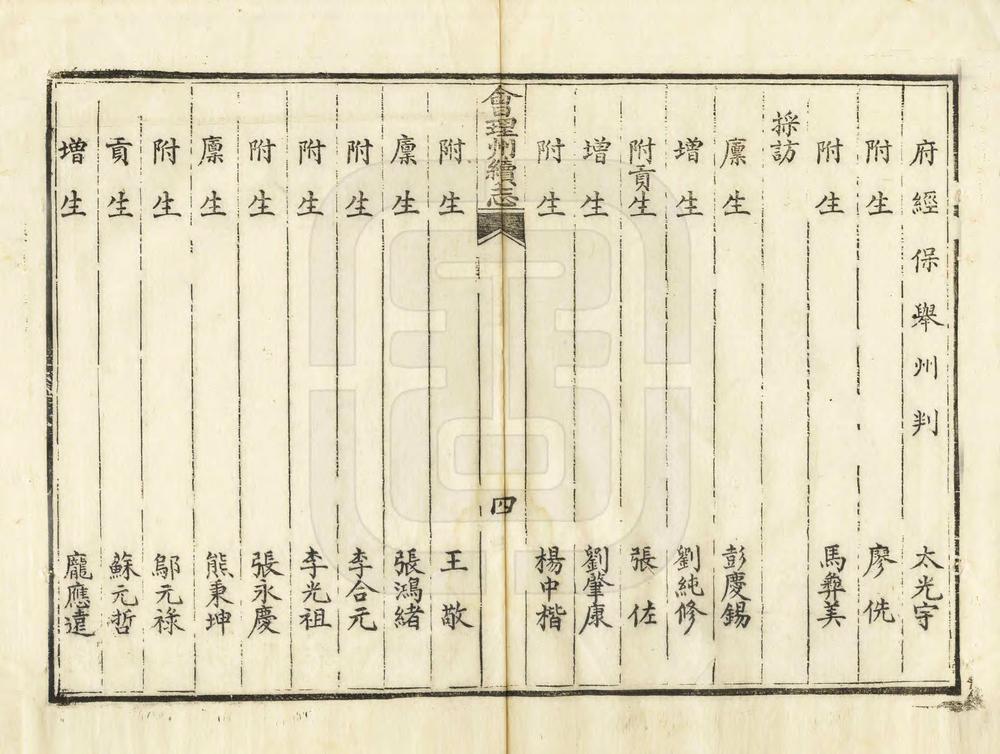 府經保舉州判 太光宇
附生 廖侁
附生 馬彜美
採訪
廪生 彭慶錫
增生 劉純修
附貢生 張佐
增生 劉肇康
附生 楊中楷
會理州續志
四
附生 王敬
廪生 張鴻緒
附生 李合元
附生 李光祖
附生 張永慶
廪生 熊秉坤
附生 鄔元祿
貢生 蘇元哲
增生 龐應遠